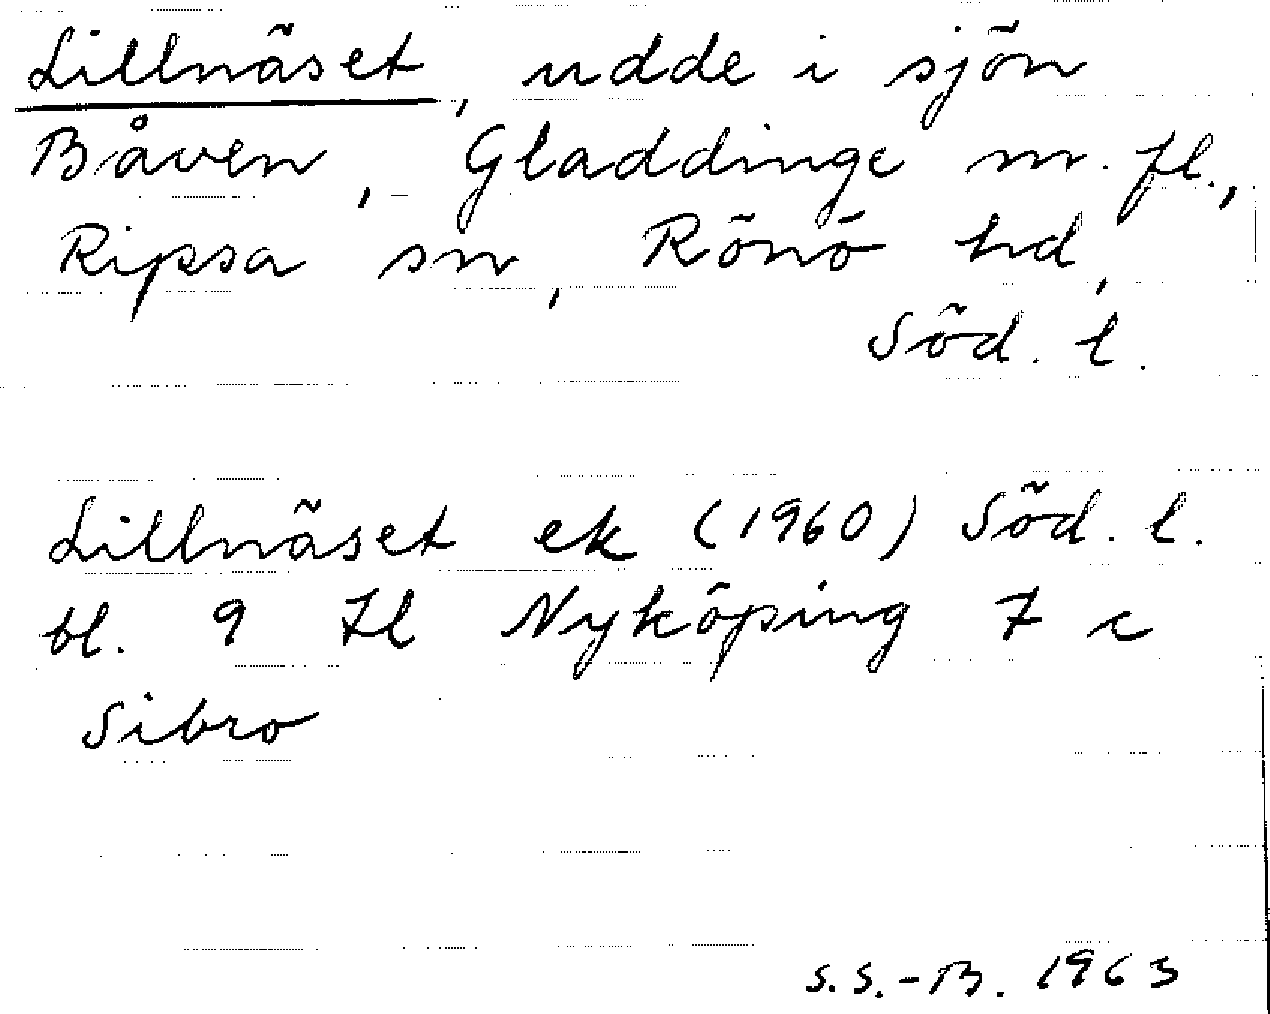 Lillnäset, udde i sjön
Båven, Gladdinge m. fl.,
Ripsa sn, Rönö hd,
Söd. l.
Lillnäset ek (1960) Söd. l.
bl. 9 Nyköping 7 c
Sibro
S.S.-B. 1963